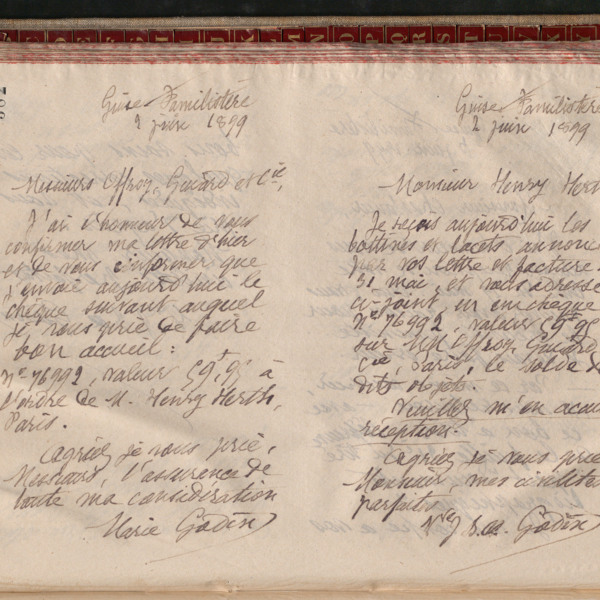 Guise Familistère
2 juin 1899
Messieurs Offroy, Guiard et Cie,
J'ai l'honneur de vous
confirmer ma lettre d'hier
et de vous informer que
j'envoie aujourd'hui le
chèque suivant auquel
je vous prie de faire
bon accueil :
No 76992, valeur
l'ordre de M. Henry Herth,
Paris.
Agréez je vous prie,
Messieurs, l'assurance de
toute ma considération
Marie Godin
Guise Familistère
2 juin 1899
Monsieur Henry Hert
Je reçois aujourd'hui les
bottines et lacets annonc
par vos lettre et facture
31 mai, et vous adresse
ci-joint, en un chèque
No 76992, valeur
sur MM Offroy, Guiard
Cie, Paris, le solde de
dits objets.
Veuillez m'en accu
réception.
Agréez je vous prie
Monsieur, mes civilités
parfaites
Godin